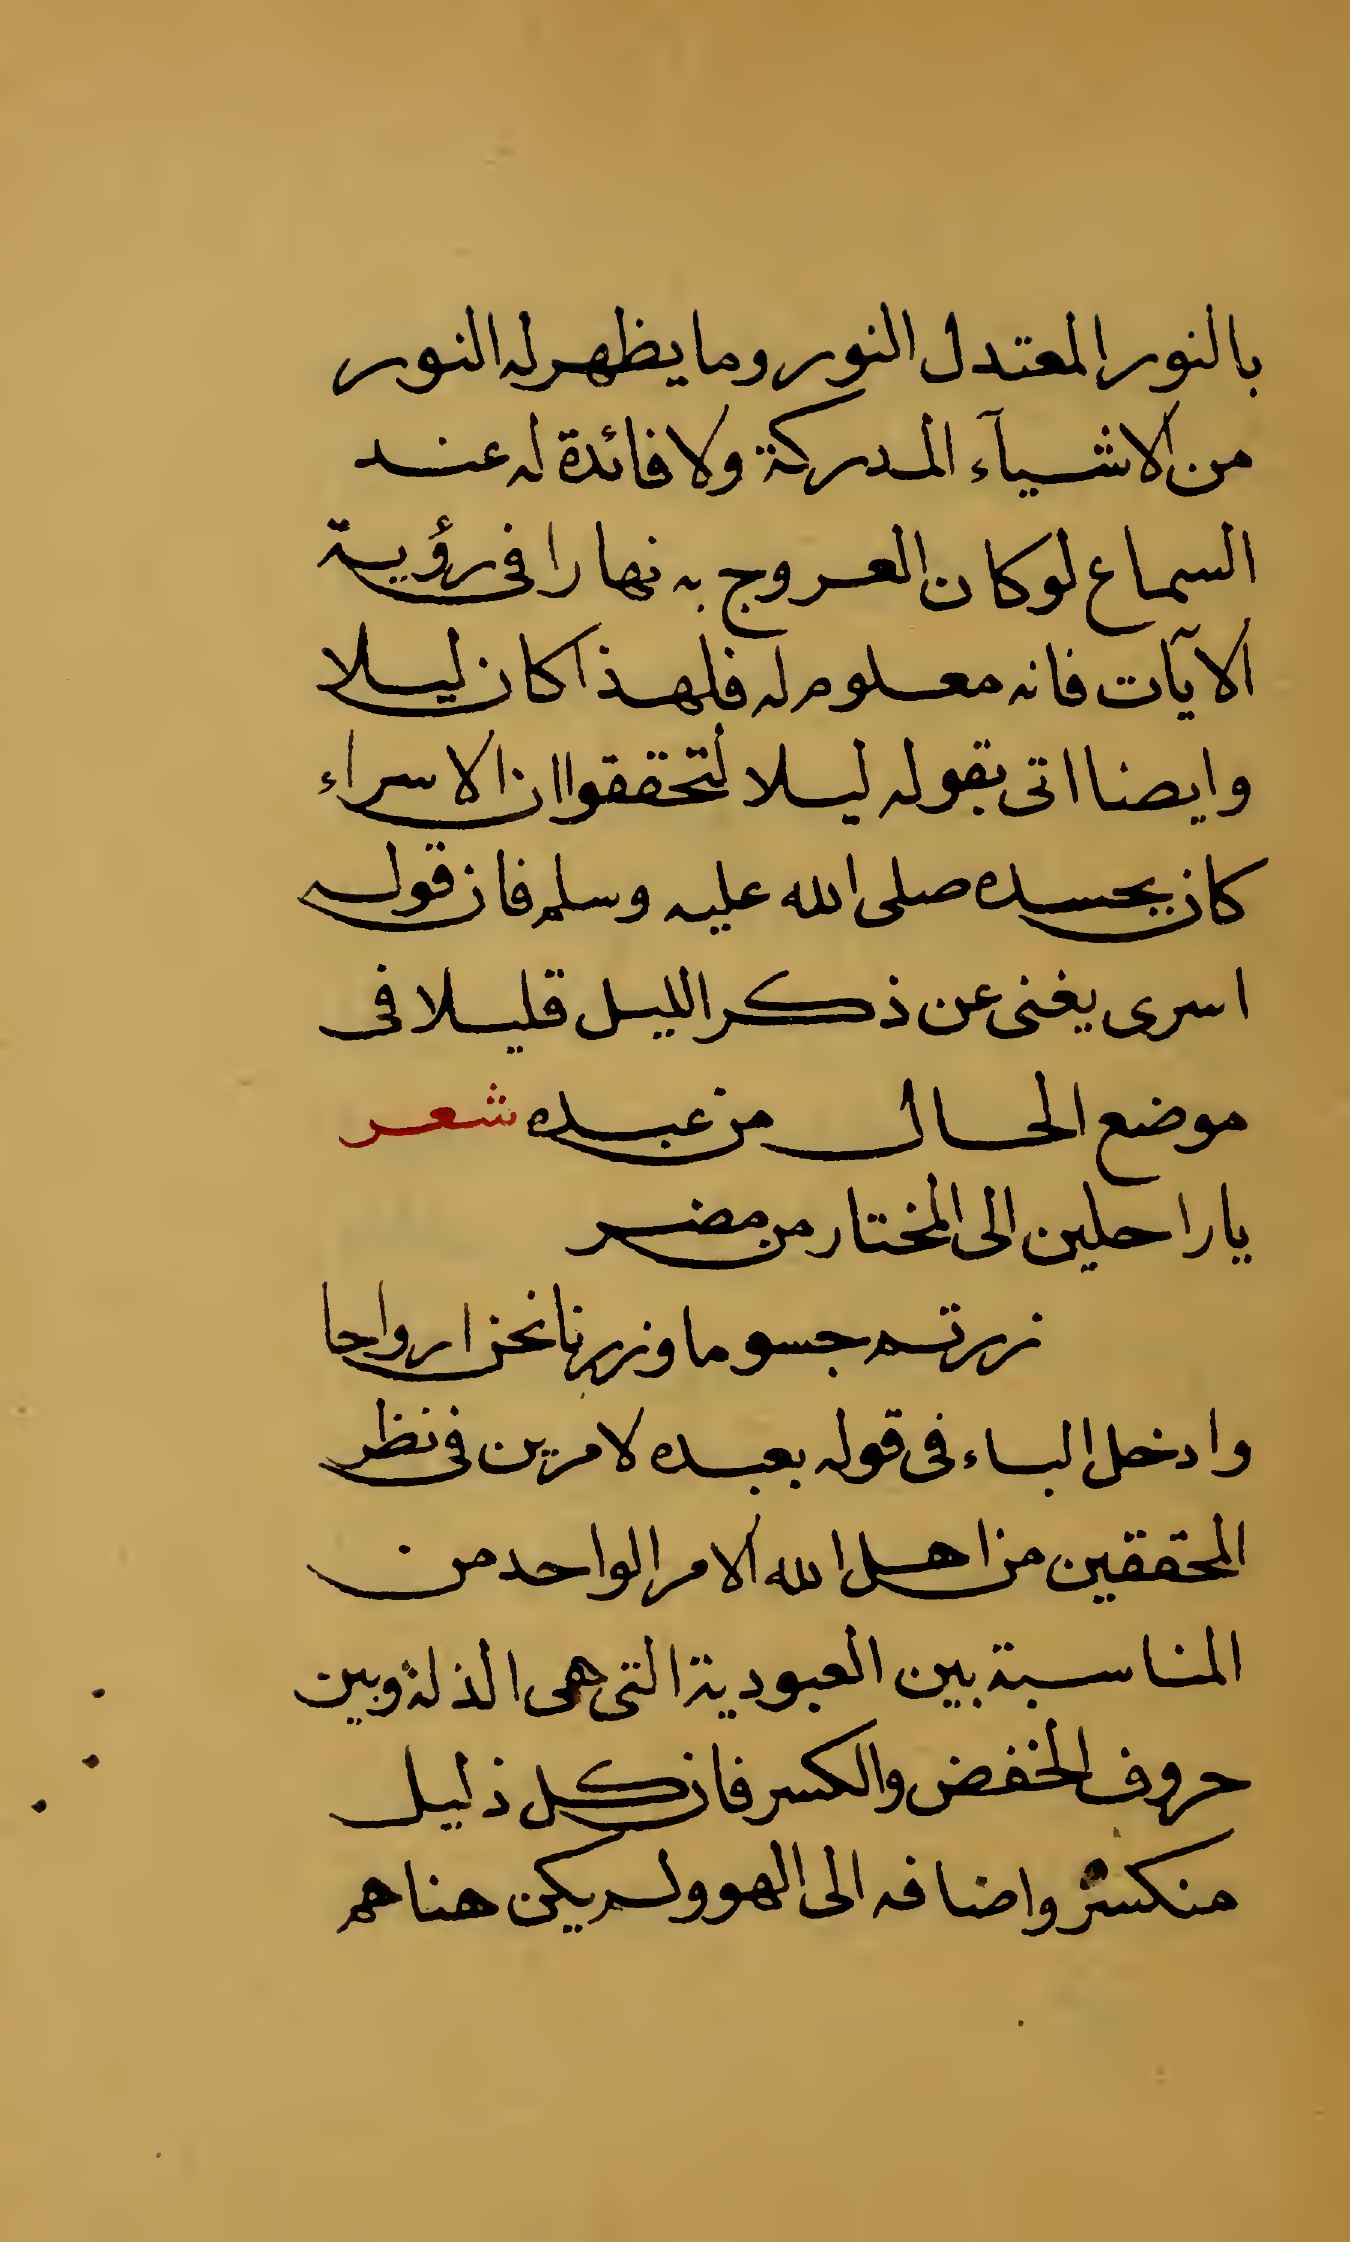 بالنور المعتدل النور وما يظهر له النور
من الاشيآء المدركة ولا فائدة له عند
السماع لو كان العروج به نهارا في رؤية
الآيات فانه معلوم له فلهذا كان ليلا
وايضا اتى بقوله ليلا لتحققوا ان الاسراء
كان بجسده صلى الله عليه وسلم فان قوله
اسرى يغنى عن ذكر الليل قليلا فى
موضع الحال من عبده شعر
يا راحلين الى المختار من مضر
زرتم جسوما وزرنا نحن ارواحا
وادخل الباء فى قوله بعبده لامرين فى نظر
المحققين من اهل الله الامر الواحد من
المناسبة بين العبودية التى هى الذلة وبين
حروف الخفض والكسر فان كل ذليل
منكسر واضافه الى الهو ولم يكن هنا هم